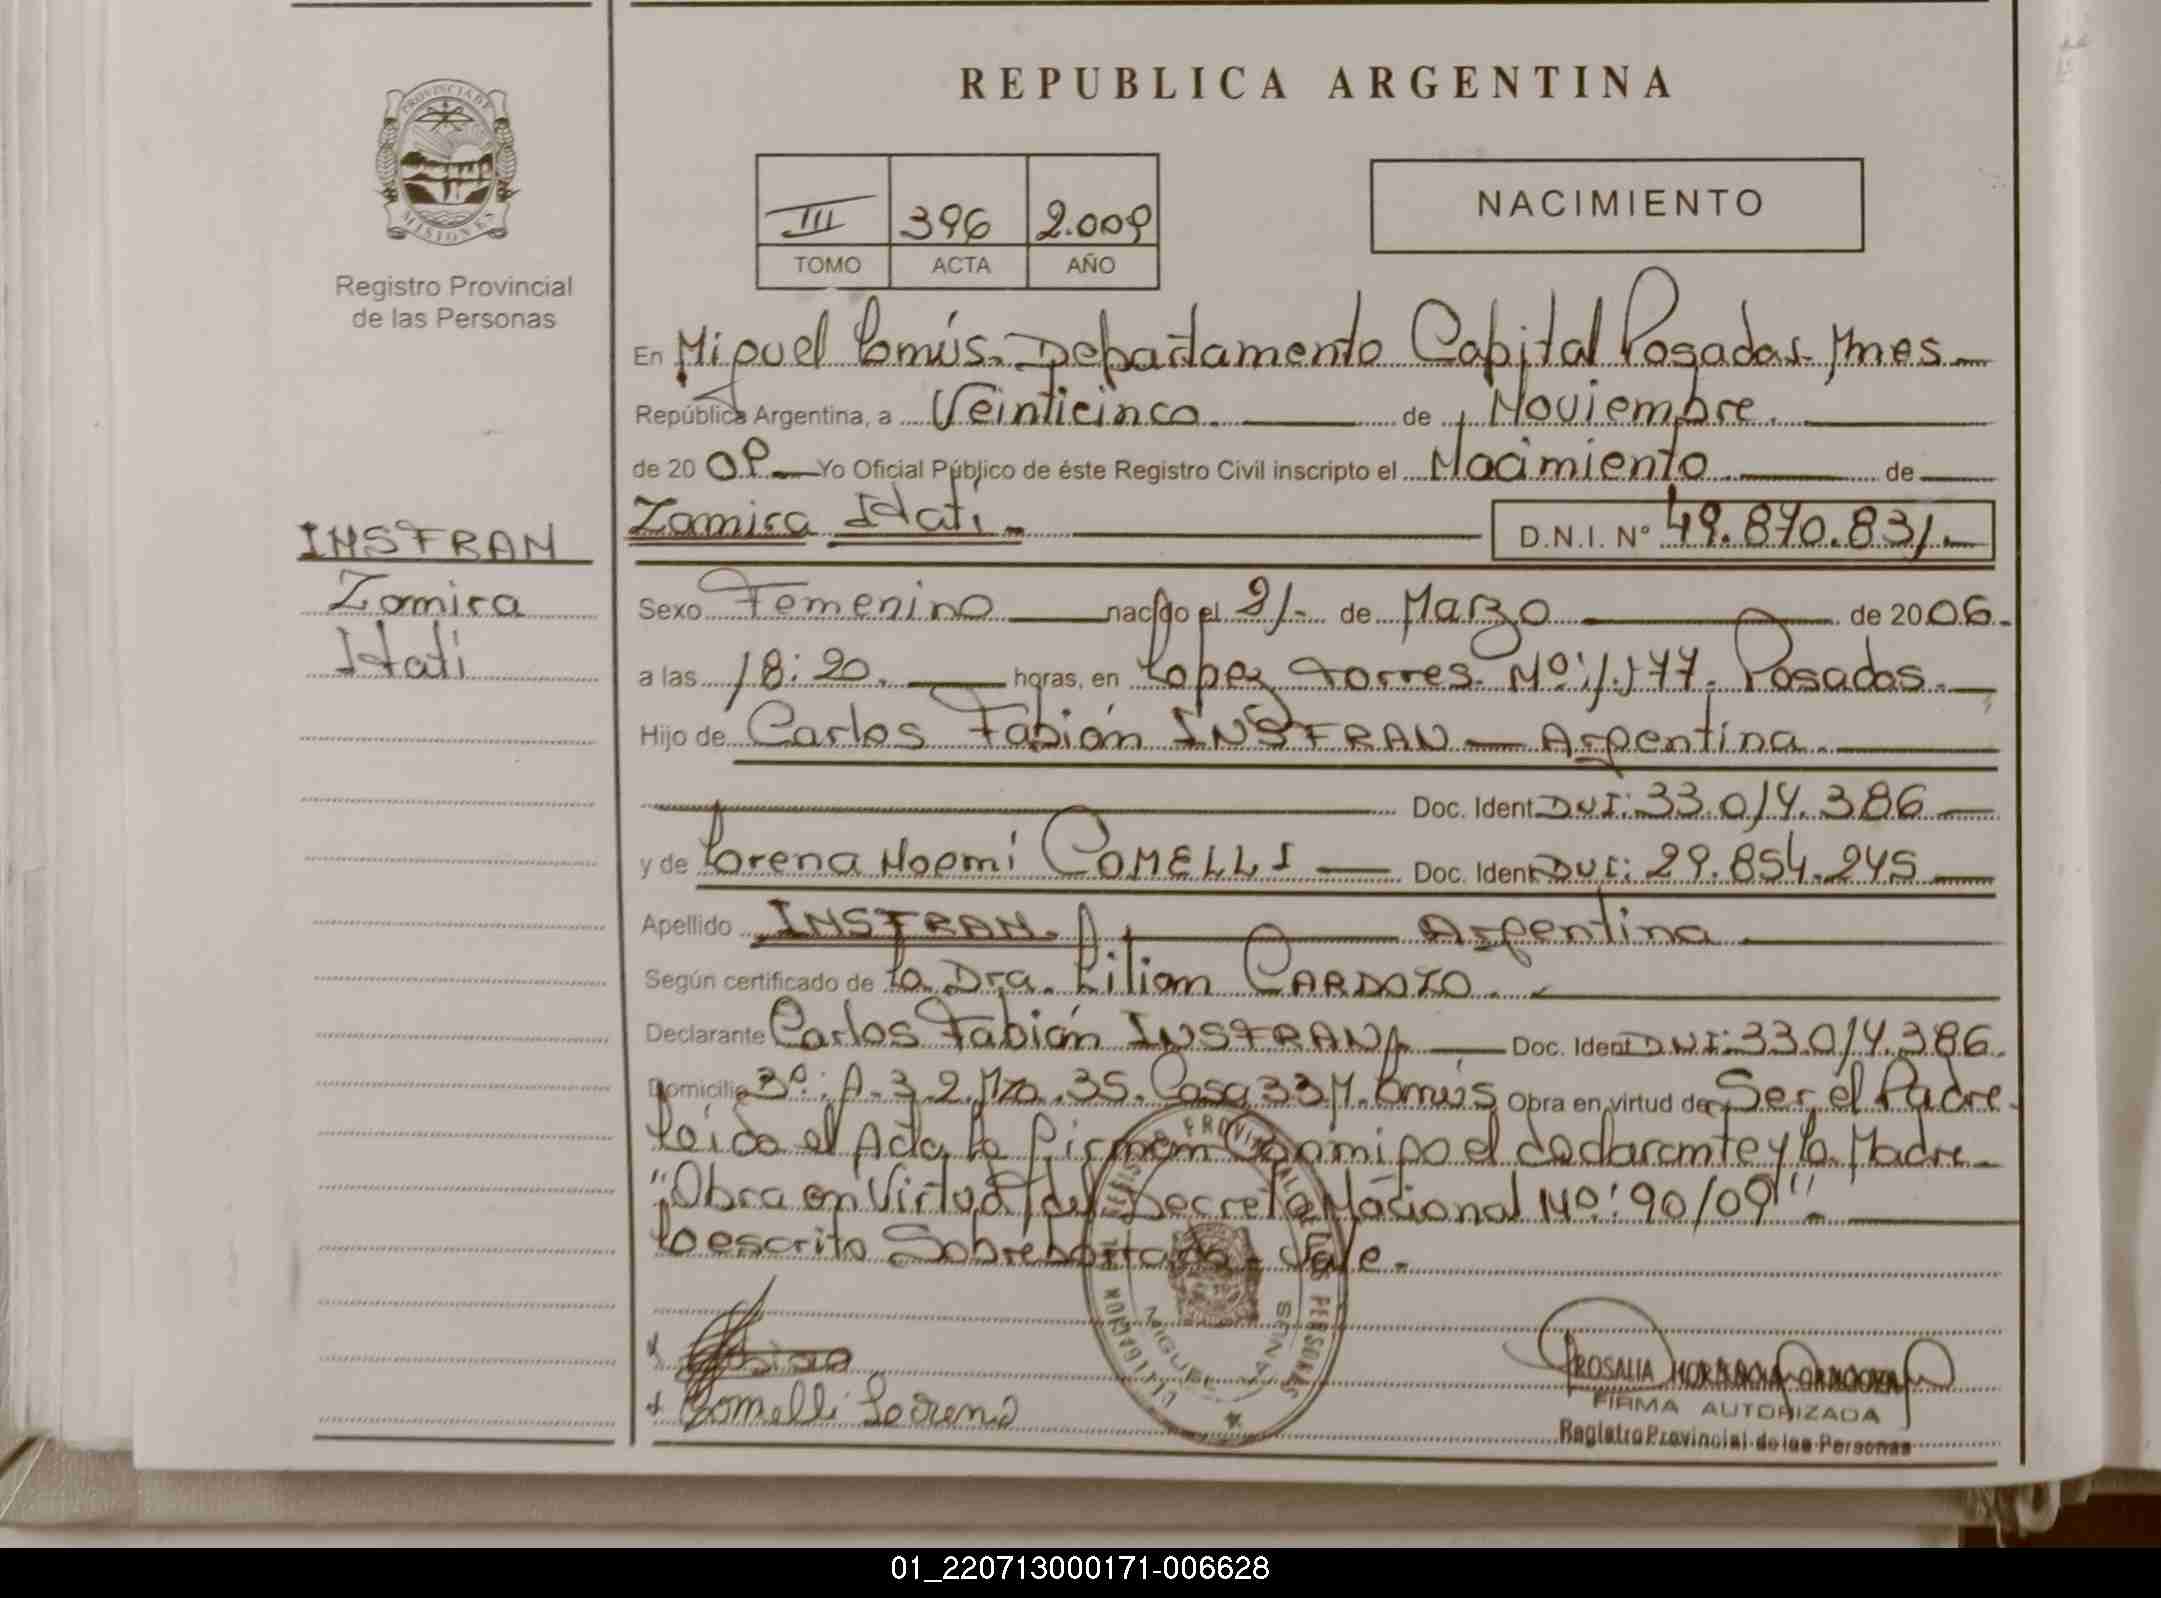 REPUBLICA ARGENTINA
PROVINCIA DE
MISIONES
Registro Provincial
de las Personas
III 396 2.009
TOMO ACTA AÑO
NACIMIENTO
En Miguel Lanús. Departamento Capital Posadas Mnes
República Argentina, a Veinticinco. de Noviembre.
de 20 09 Yo Oficial Público de éste Registro Civil inscripto el Nacimiento de
Zamira Itatí. D.N.I. Nº 49.870.831.-
INSFRAN
Zamira
Itatí
Sexo Femenino nacido el 21.- de Marzo de 2006.
a las 18:20. horas, en Lopez Torres Nº: 1.177. Posadas.
Hijo de Carlos Fabián INSFRAN Argentina.
Doc. Ident DNI: 33.014.386
y de Lorena Noemí COMELLI Doc. Ident DNI: 29.854.245
Apellido INSFRAN. Argentina
Según certificado de La Dra. Lilian CARDOZO.
Declarante Carlos Fabián INSFRAN Doc. Ident DNI: 33.014.386.
Domicilio 3º: A.3.2. Mza. 35. Casa 33 M. Lanús Obra en virtud de Ser el Padre.
Leída el Acta la firman Conmigo el declarante y la Madre
"Obra en Virtud del Decreto Nacional Nº: 90/09"
Lo escrito Sobreborrado Vale.
REGISTRO PROVINCIAL DE LAS PERSONAS
MIGUEL LANUS
DELEGACION
Comelli Lorena
ROSALIA
FIRMA AUTORIZADA
Registro Provincial de las Personas
01_220713000171-006628